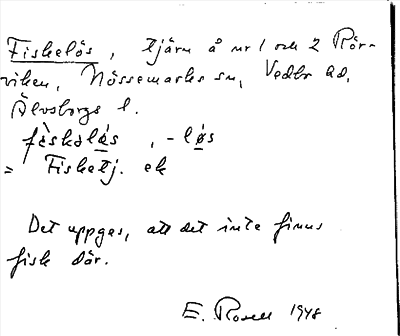 Fiskelös, tjärn å nr 1 och 2 Rör-
viken, Nössemarks sn, Vedbo hd,
Älvsborgs l.
fìskəlø̀s, -løs
= Fisketj. ek
Det uppges, att det inte finns
fisk där.
E. Rosell 1948